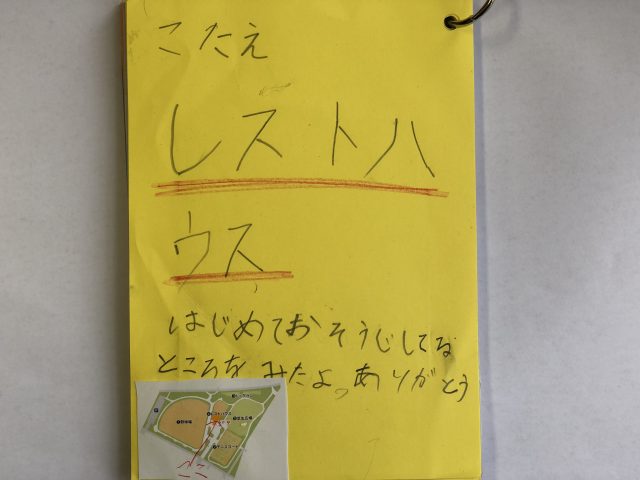 こたえ
レストハ
ウス
はじめておそうじしてる
ところをみたよ。ありがとう
ここ